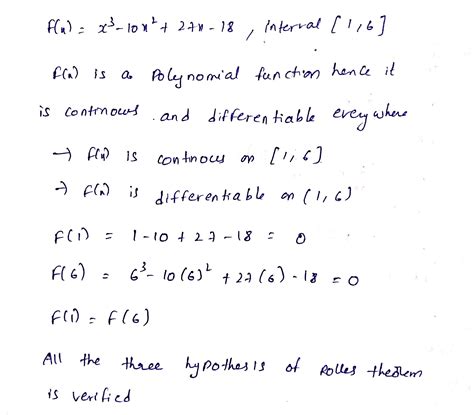 f(x) = x³-10x²+ 27x-18 , interval [1,6]
f(x) is a polynomial function hence it
is continous and differentiable everywhere
→ f(x) is continous on [1,6]
→ f(x) is differentiable on (1,6)
f(1) = 1-10 + 27-18 = 0
f(6) = 6³- 10(6)² + 27(6) - 18 = 0
f(1) = f(6)
All the three hypothesis of Rolles theorem
is verified